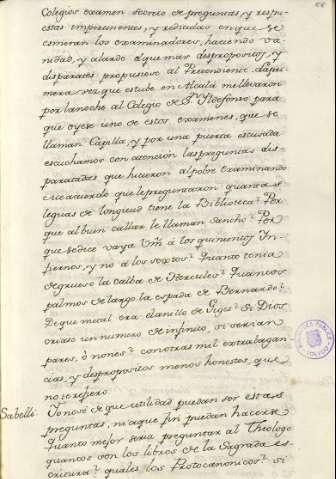 Colegios examen secreto de preguntas, y respu-
estas impertinentes, y redicadas en que se
esmeran los examinadores, haciendo va-
nidad, y alarde de que mas despropositos, y
disparates propusiese al Pretendiente. La pri-
mera vez que estube en Alcalá me llevaron
por la noche al Colegio de Sn. Yldefonso para
que oyese uno de estos examenes, que se
llaman Capilla, y por una puerta escusada
escuchamos con atención las preguntas dis-
paratadas que hicieron al pobre examinando
me acuerdo que le preguntaron quantas
leguas de longitud tiene la Biblioteca? Por
que al buen callar le llaman Sancho? Por
que se dice vaya Vm. á los quinientos In-
fiernos, y no á los sextos? Quanto tenia
de grueso la calba de Hercules? Quantos
palmos de largo la espada de Bernardo?
De que metal era el anillo de Giges? Si Dios
criase un numero de infinito, si serian
pares, ó nones? con otras mil extrabagan-
cias, y despropositos menos honestos, que
no refiero.
Sabelli: Yo no sé de que utilidad puedan ser estas
preguntas, ni a que fin puedan hacerse
quanto mejor seria preguntar al Theologo
quantos son los libros de la Sagrada es-
critura? quales los Protocanonicos? si